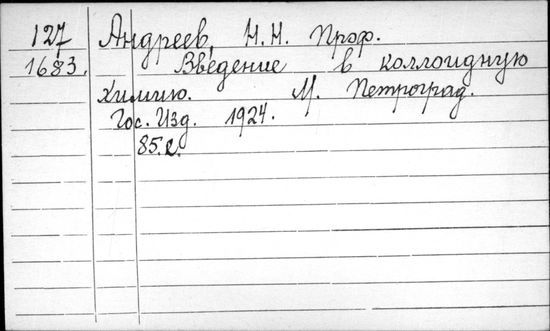 127 Андреев, Н.Н. Проф.
1683. Введение в коллоидную
химию. М. Петроград.
Гос. Изд. 1924.
85.с.